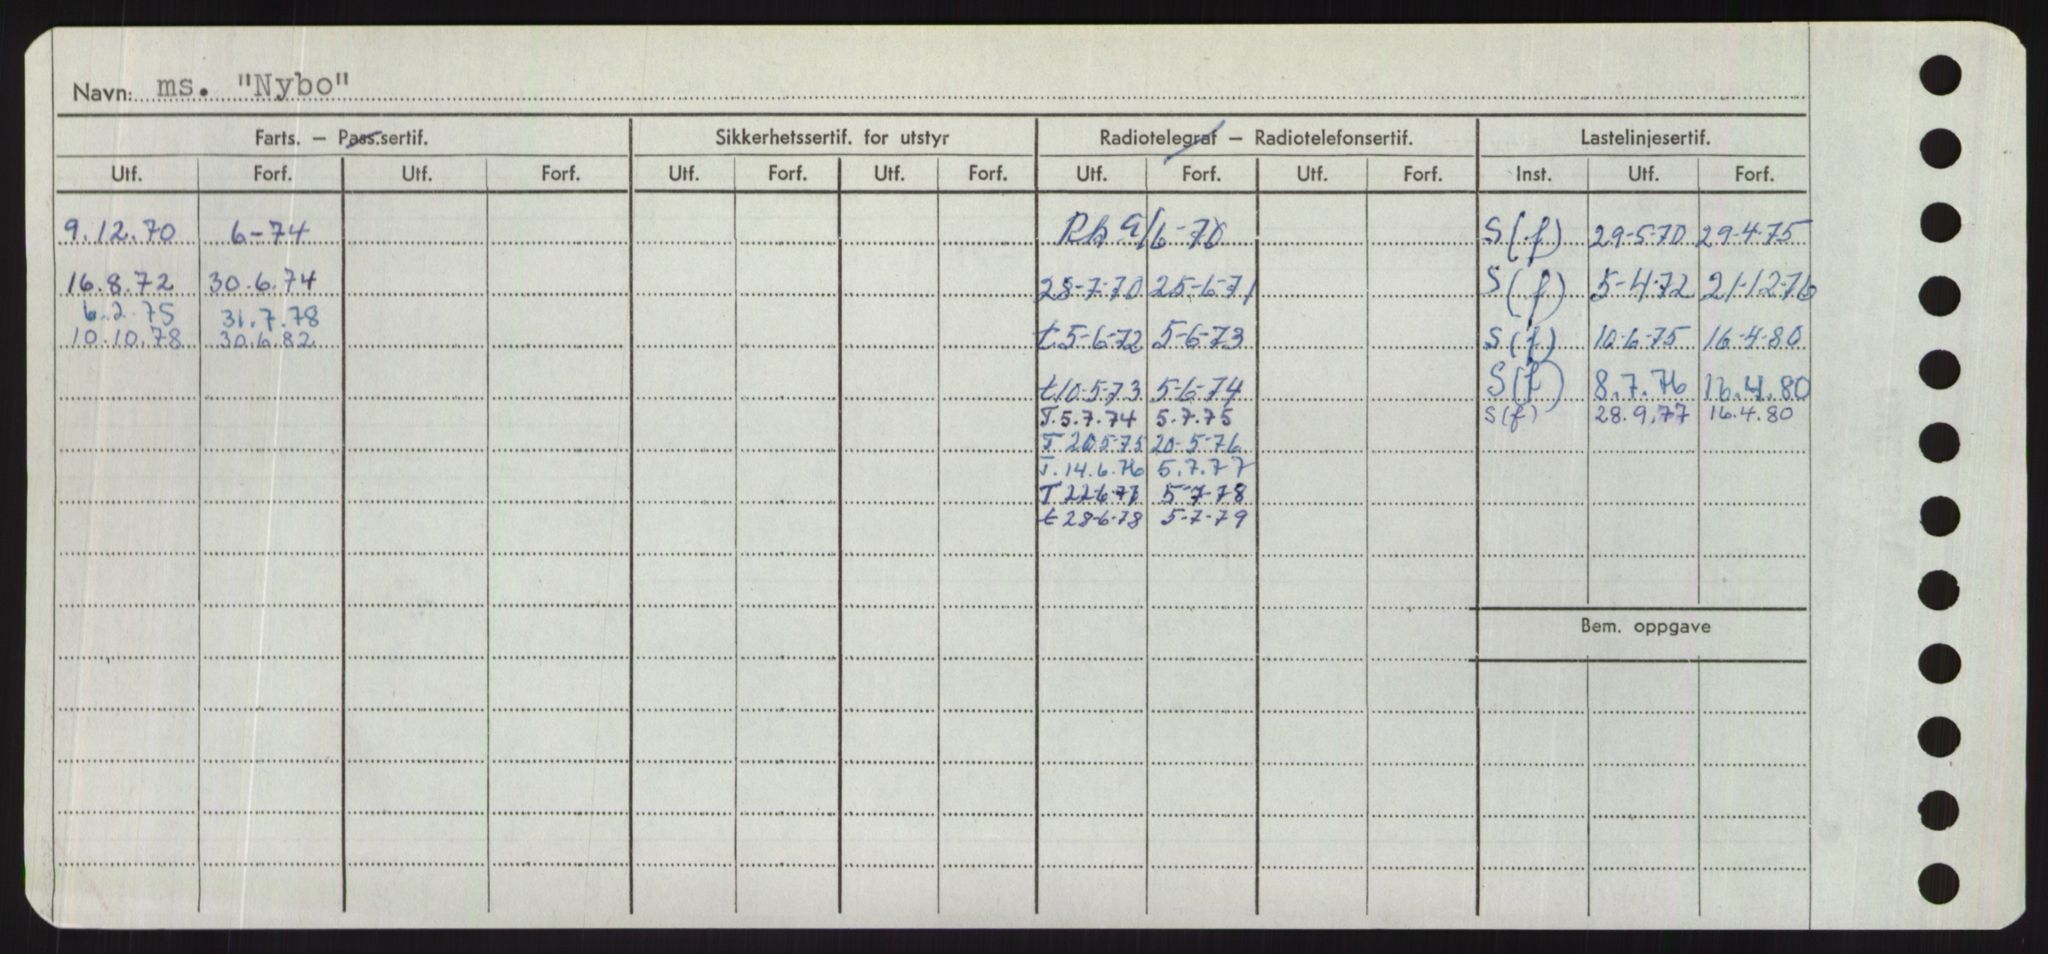 Navn: ms. "Nybo"
Farts. — Pass.sertif. Sikkerhetssertif. for utstyr Radiotelegraf — Radiotelefonsertif. Lastelinjesertif.
Utf. Forf. Utf. Forf. Utf. Forf. Utf. Forf. Utf. Forf. Utf. Forf. Inst. Utf. Forf.
9.12.70 6-74 9/6-70 S(f) 29-5-70 29-4-75
16.8.72 30.6.74 28-7-70 25-6-71 S(f) 5-4-72 21-12-76
6.2.75 31.7.78
10.10.78 30.6.82 t.5-6-72 5-6-73 S(f) 10-6-75 16-4-80
t10-5-73 5-6-74 S(f) 8.7.76 16.4.80
T.5.7.74 5.7.75 S(f) 28.9.77 16.4.80
T 20-5-75 20-5-76
T.14.6.76 5.7.77
T 22-6-77 5-7-78
t 28-6-78 5-7-79
Bem. oppgave